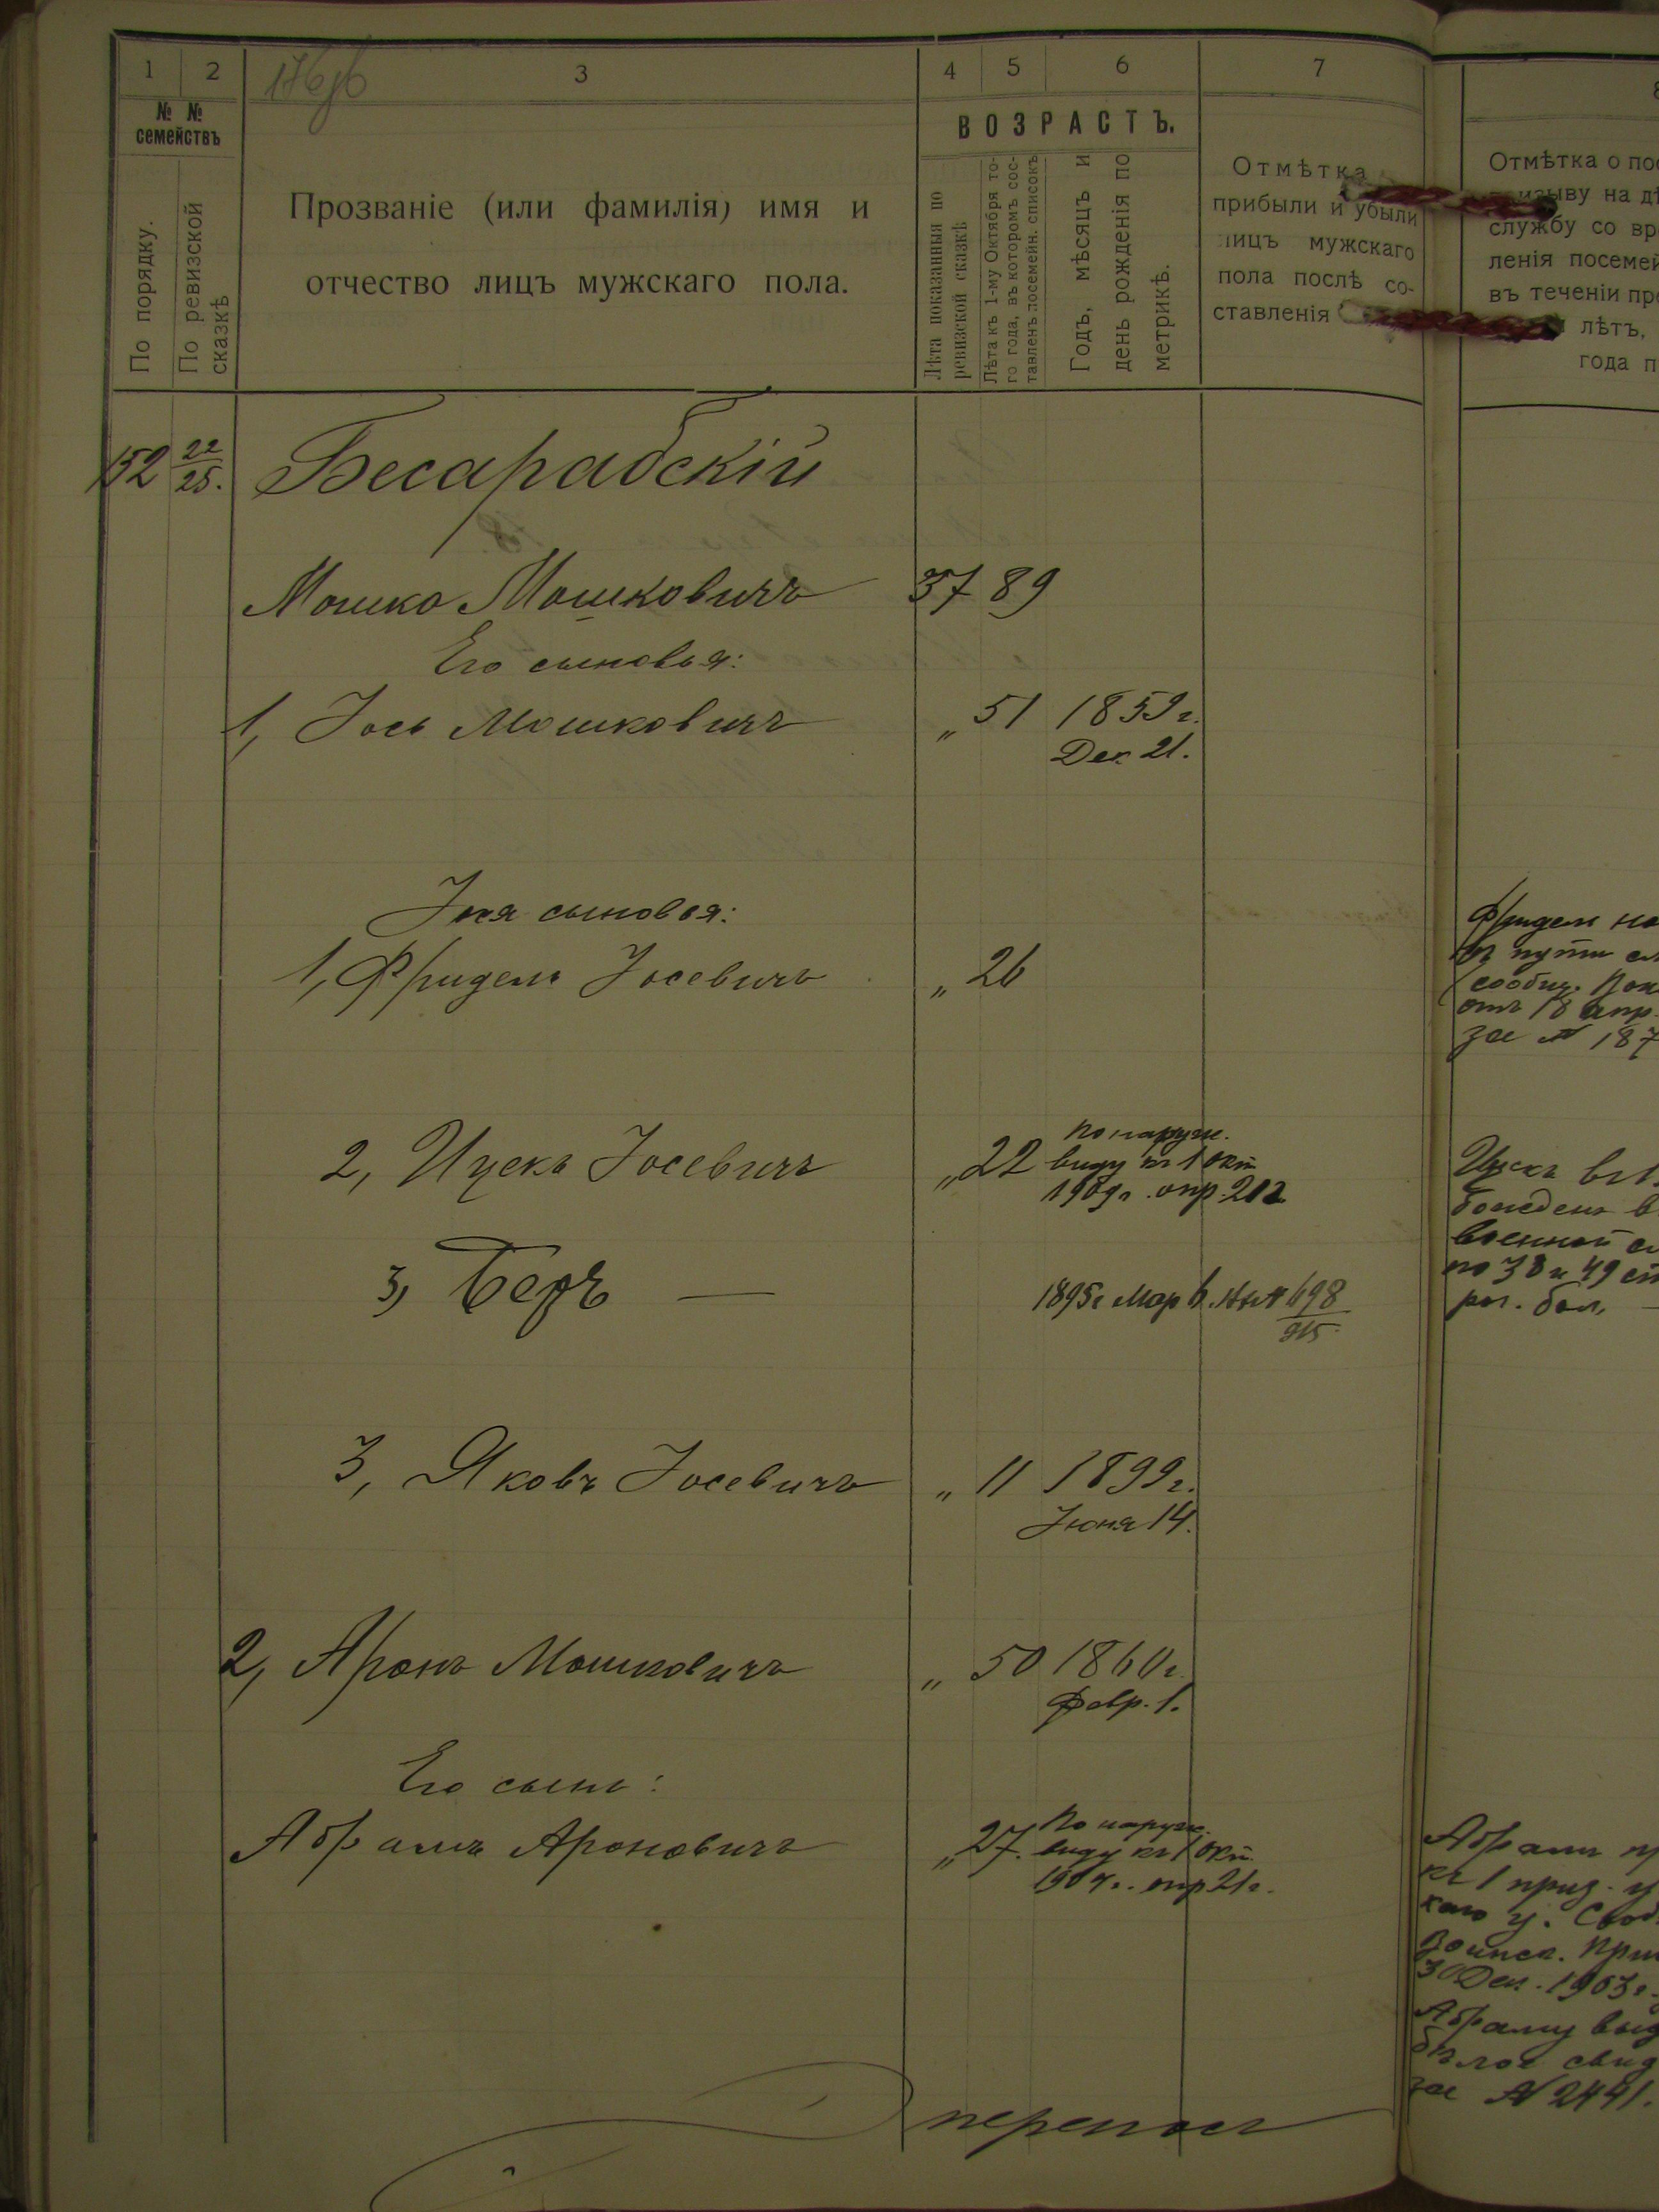 1 2 3 4 5 6 7
№ № семействъ
По порядку.
По ревизской сказкѣ
Прозваніе (или фамилія) имя и
отчество лицъ мужскаго пола.
ВОЗРАСТЪ.
Лѣта показанныя по
ревизской сказкѣ
Лѣта къ 1-му Октября то-
го года, въ которомъ сос-
тавленъ посемейн. списокъ
Годъ, мѣсяцъ и
день рожденія по
метрикѣ.
Отмѣтка
прибыли и убыли
лицъ мужскаго
пола послѣ со-
ставленія
Отмѣтка о по
на дѣ
службу со вр
ленія посемей
въ теченіи пр
лѣтъ,
года п
152 22/25. Бесарабскій
Мошко Мошковичъ 37 89
Его сыновья:
1, Іось Мошковичъ „ 51 1859 г.
Дек. 21.
Іося сыновья:
1, Фридель Іосевичъ „ 26
Фридель на
въ пути сл
сообщ.
отъ 18 апр.
за № 187
2, Ицекъ Іосевичъ „ 22 По наружн.
виду къ 1 окт
1909 г. опр. 21 г.
Ицекъ
божденъ в
военной сл
по 38 и 49 ст
3, Беръ — 1895 г Мар 6. 698
915
3, Яковъ Іосевичъ „ 11 1899 г.
Іюня 14.
2, Аронъ Мошковичъ „ 50 1860 г.
Февр. 1.
Его сынъ:
Абрамъ Ароновичъ „ 27. По наружн.
виду къ 1 окт.
1904 г. опр 21 г.
Абрамъ пр
къ 1 приз. у
каго у.
воинск. При
30 Дек. 1903 г.
Абраму выд
бѣлое свид
за № 2441.
переносъ